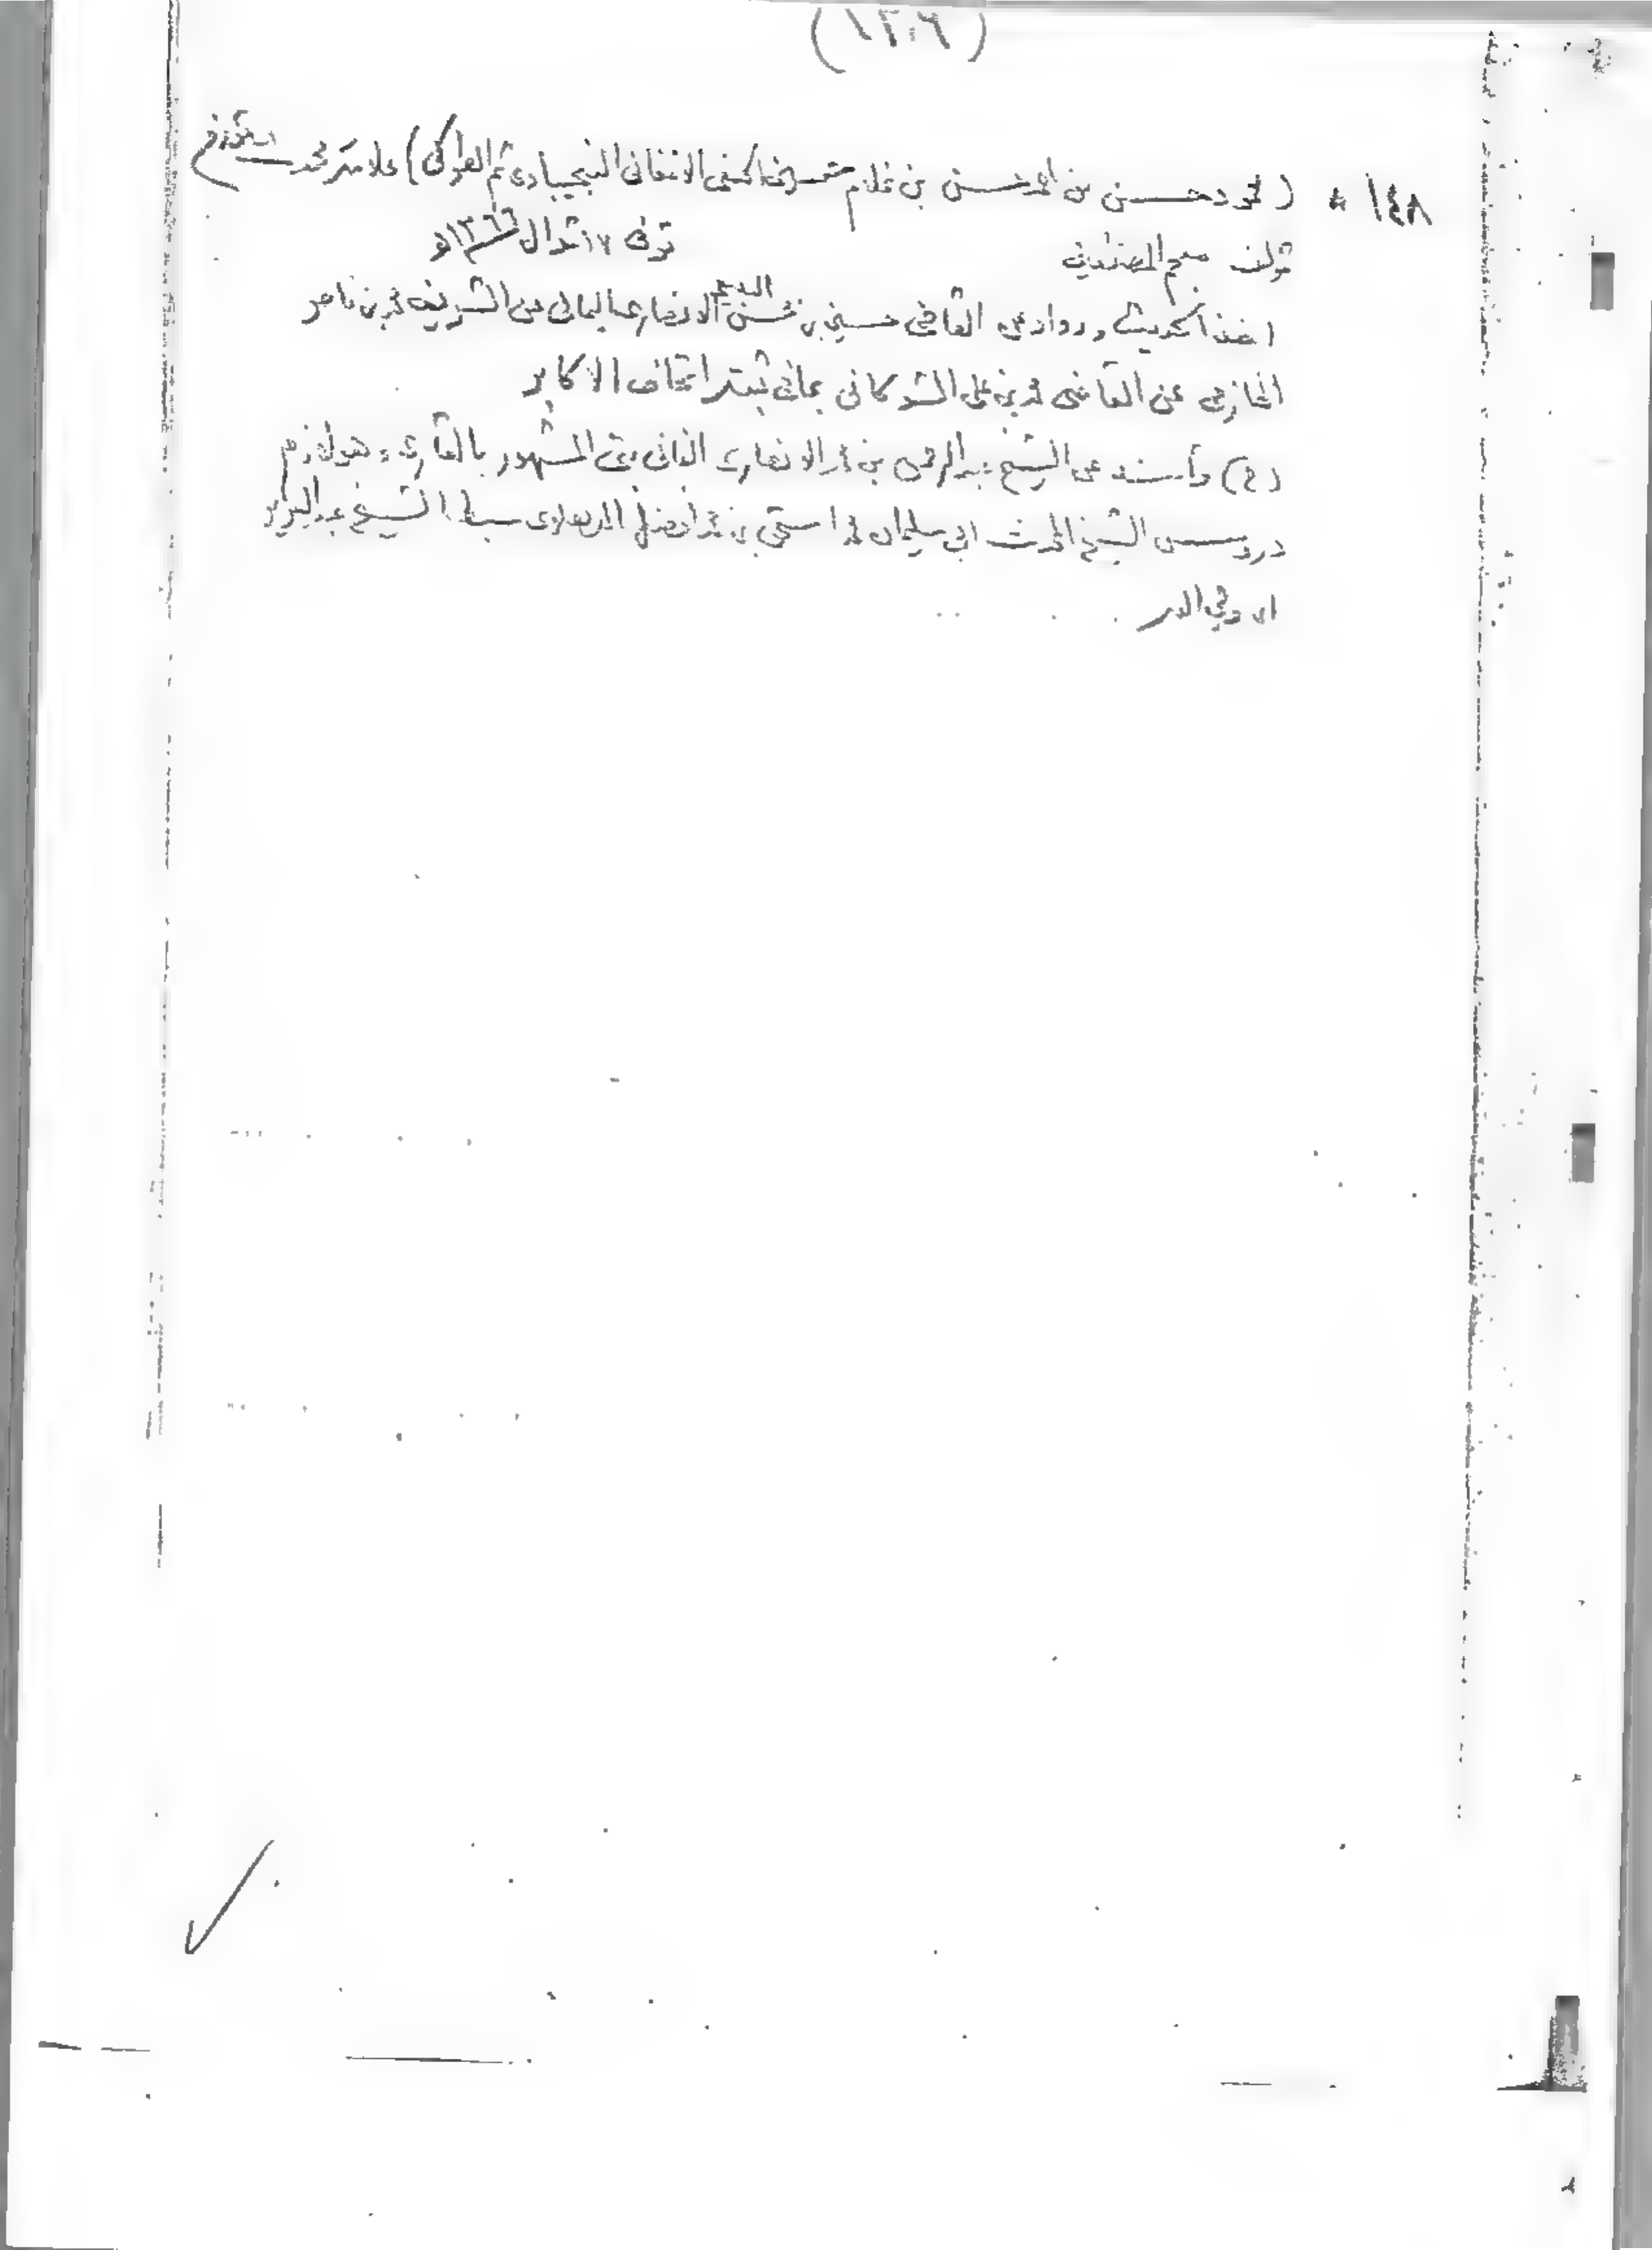 (١٢٠٦)
١٤٨ * (محمود حسن بن احمد حسن بن غلام حسين الحنفي الافغاني النجيبابادي ثم الطوكي) علامه محمد
مؤلف معجم المصنفين توفى ١٧ شوال ١٣٦٦هـ
اخذ الحديث وروا عن القاضي حسين بن محسن السبعي الانصاري اليماني عن الشريف محمد بن ناصر
الحازمي عن القاضي محمد بن علي الشوكاني بما في ثبته اتحاف الاكابر
(ح) وأسند عن الشيخ عبدالرحمن بن محمد الانصاري الفاني فتي المشهور بالقاري وهو لازم
دروس الشيخ المحدث ابي سليمان محمد اسحق بن محمد افضل الدهلوي سبط الشيخ عبدالعزيز
ابن ولي الله